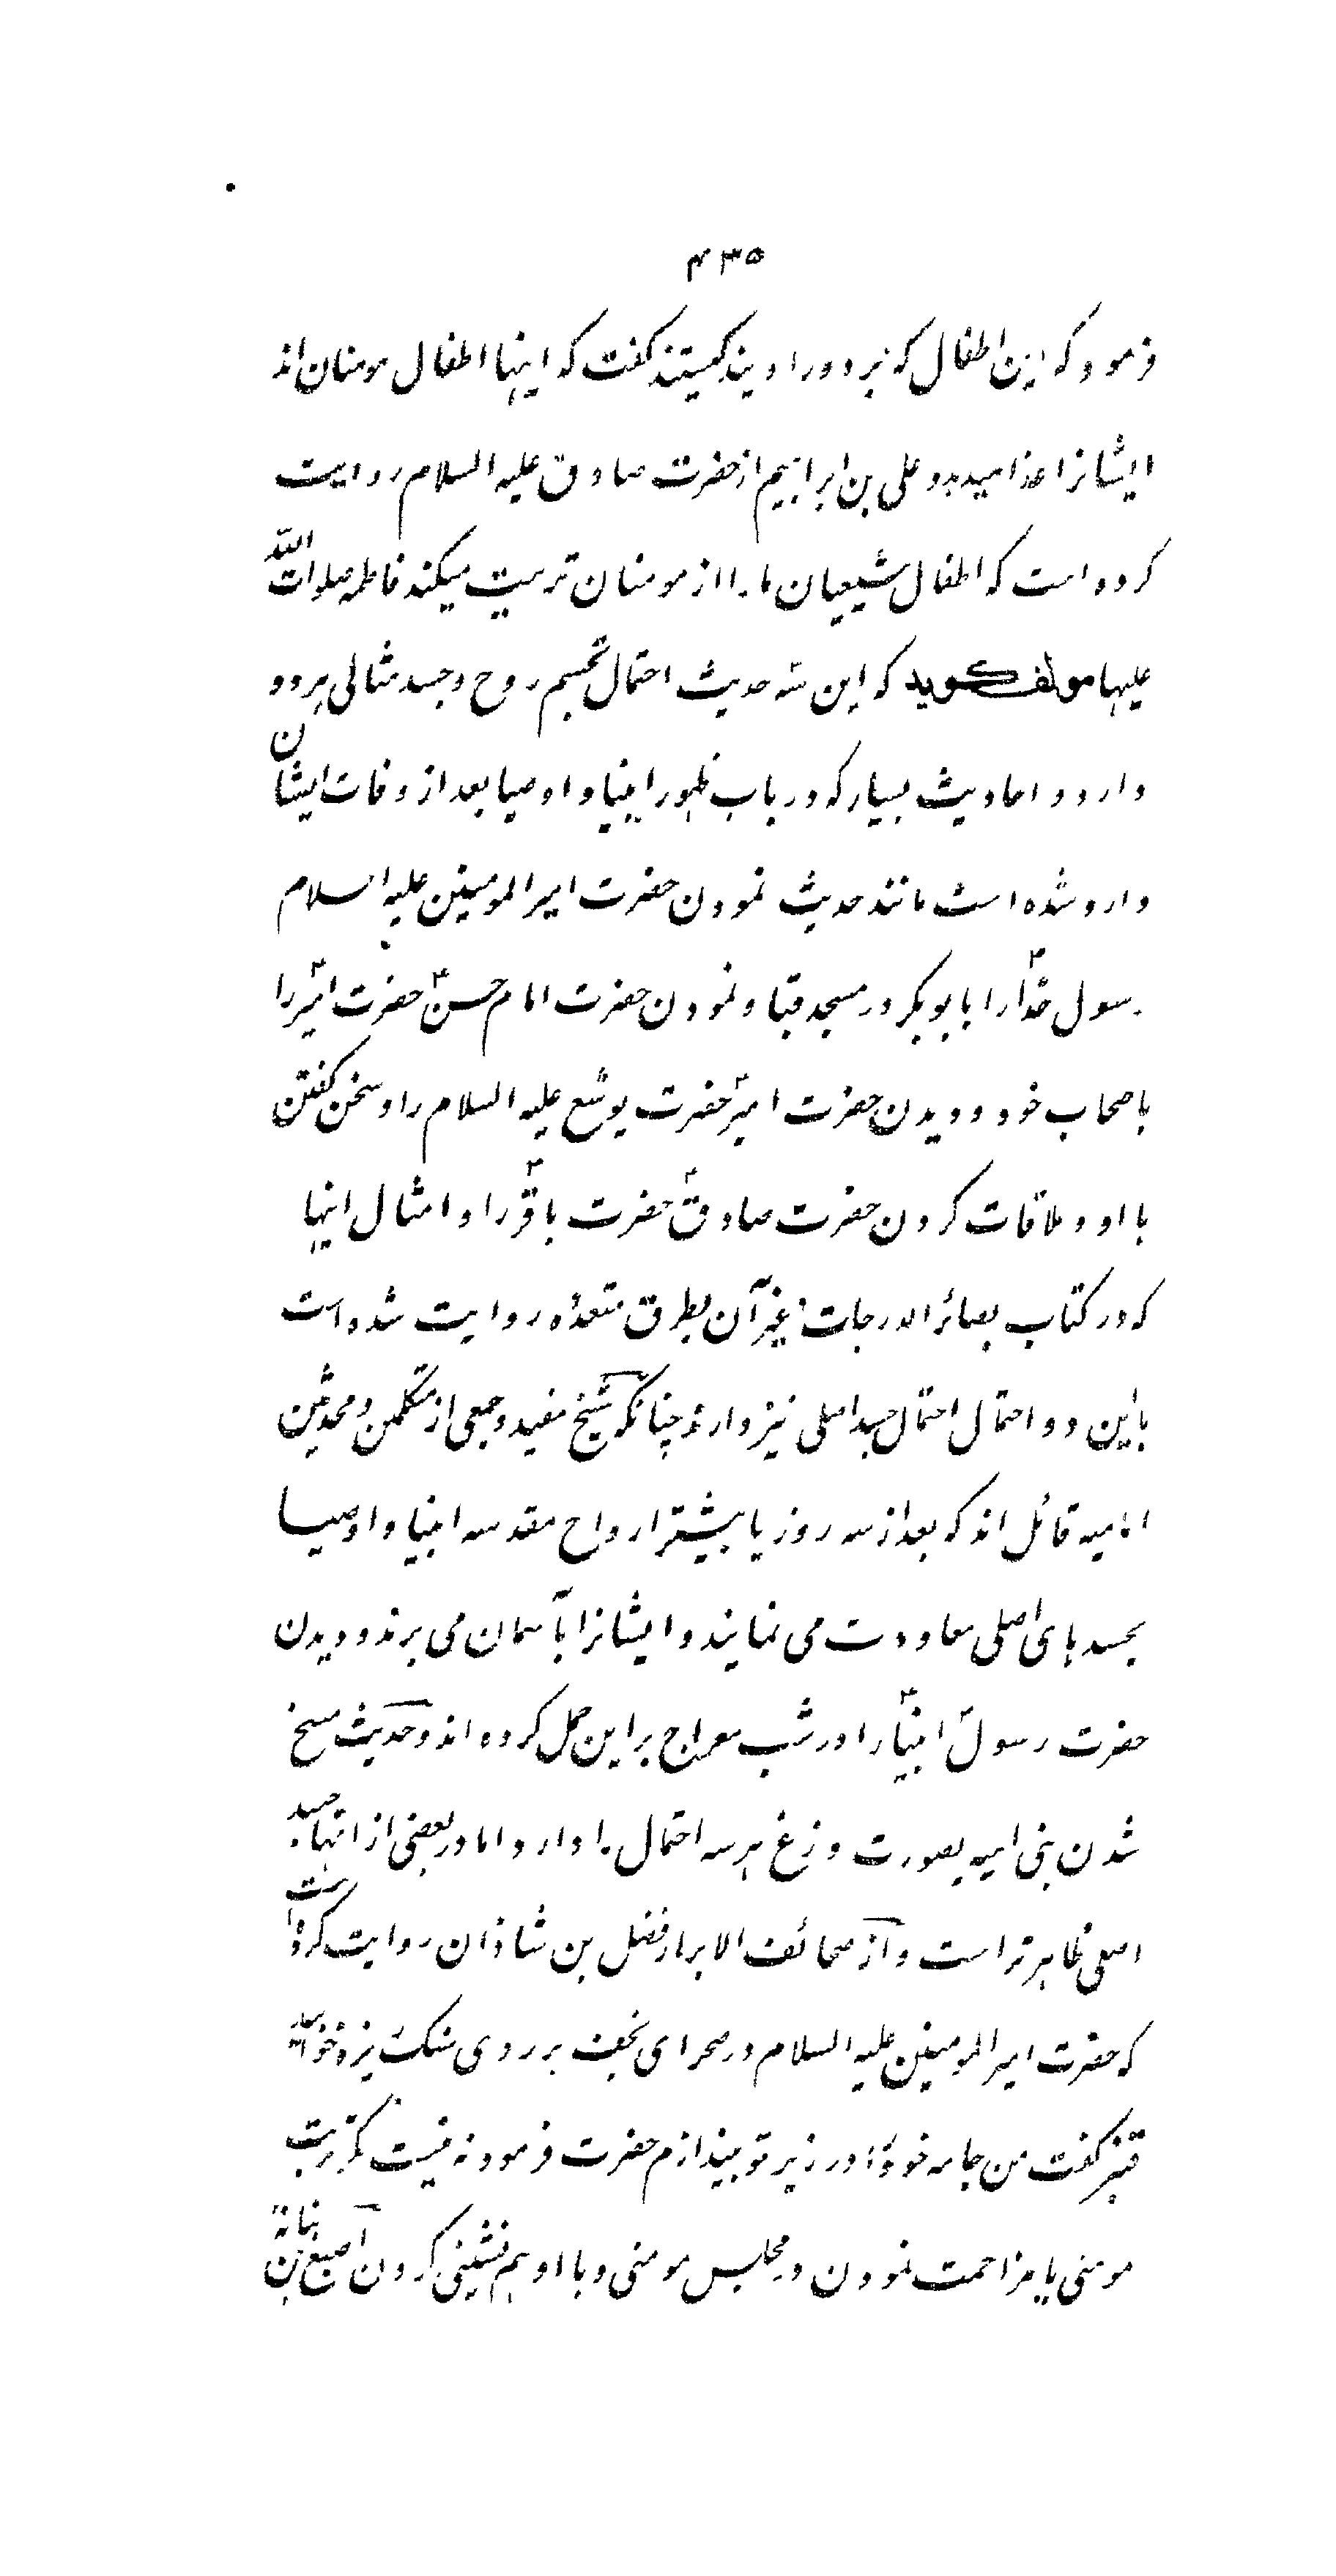 ۴۳۵
فرمود که این اطفال که بر دور اویند کیستند گفت که اینها اطفال مومنان اند
ایشانرا غذا میدهد و علی بن ابراهیم از حضرت صادق علیه السلام روایت
کرده است که اطفال شیعیان ما را از مومنان تربیت میکند فاطمه صلوات الله
علیها مولف کوید که این سه حدیث احتمال تجسم روح و جسد مثالی هر دو
دارد و احادیث بسیار که در باب ظهور انبیا و اوصیا بعد از وفات ایشان
وارد شده است مانند حدیث نمودن حضرت امیر المومنین علیه السلام
رسول خدا را بابوبکر در مسجد قبا و نمودن حضرت امام حسن حضرت امیر را
باصحاب خود و دیدن حضرت امیر حضرت یوشع علیه السلام را و سخن گفتن
با او و ملاقات کردن حضرت صادق حضرت باقر را و امثال اینها
که در کتاب بصائر الدرجات و غیر آن بطرق متعدده روایت شده است
باین دو احتمال احتمال جسد اصلی نیز دارد چنانکه شیخ مفید و جمعی از متکلمین و محدثین
امامیه قائل اند که بعد از سه روز یا بیشتر ارواح مقدسه انبیا و اوصیا
بجسد های اصلی معاودت می نمایند و ایشانرا بآسمان می برند و دیدن
حضرت رسول انبیا را در شب معراج بر این حمل کرده اند و حدیث مسخ
شدن بنی امیه بصورت وزغ هر سه احتمال را دارد اما در بعضی از انها جسد
اصلی ظاهر تر است و از صحائف الابرار فضل بن شاذان روایت کرده است
که حضرت امیر المومنین علیه السلام در صحرای نجف بر روی سنگ ریزه خوابید
قنبر گفت من جامه خود را در زیر تو بیندازم حضرت فرمود نه نیست مگر تربت
مومنی یا مزاحمت نمودن در مجلس مومنی و با او هم نشینی کردن اصبغ بن نباته